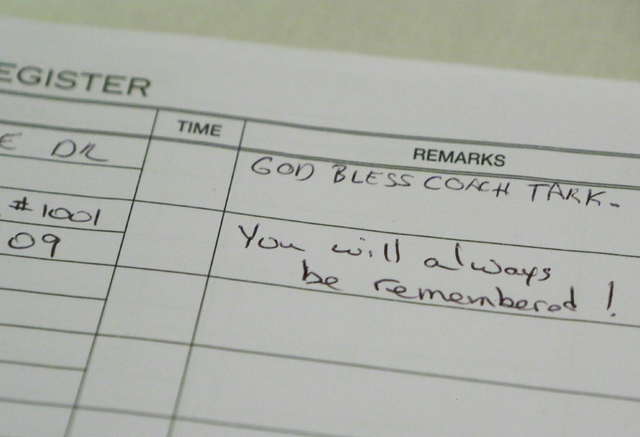 EGISTER
TIME
REMARKS
E DR
GOD BLESS COACH TARK-
#1001
09
You will always
be remembered!